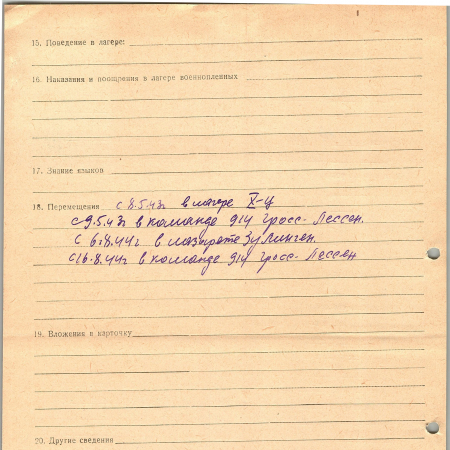 15. Поведение в лагере:
16. Наказания и поощрения в лагере военнопленных
17. Знание языков
18. Перемещения с 8.5.43г в лагере X-Ц
с 9.5.43г в команде 914 Гросс-Лессен.
с 6.8.44г в лазарете Зулинген.
с 16.8.44г в команде 914 Гросс-Лессен
19. Вложения в карточку
20. Другие сведения